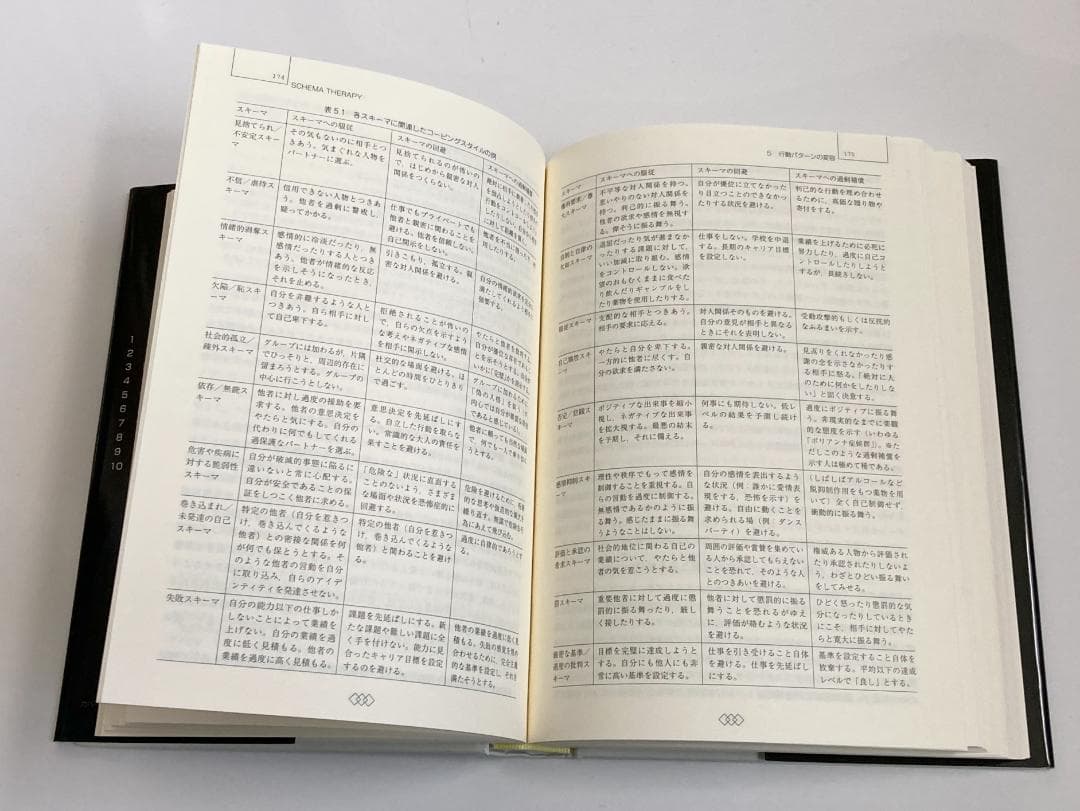 174
SCHEMA THERAPY
表5.1 各スキーマに関連したコーピングスタイルの例
スキーマ
スキーマへの服従
スキーマの回避
見捨てられ/
不安定スキーマ
その気もないのに相手とつ
きあう。気まぐれな人物を
パートナーに選ぶ。
見捨てられるのが怖いの
で、はじめから親密な対人
関係をつくらない。
不信/虐待スキ
ーマ
信用できない人物とつきあ
う。他者を過剰に警戒し、
疑ってかかる。
仕事でもプライベートでも
他者と親密に関わることを
避ける。他者を信頼しない。
自己開示をしない。
情緒的剥奪スキ
ーマ
感情的に冷淡だったり、無
感情だったりする人とつき
あう。他者が情緒的な反応
を示しそうになったとき、
それを止める。
引きこもり、孤立する。親
密な対人関係を避ける。
欠陥/恥スキー
マ
自分を非難するような人と
つきあう。自ら相手に対し
て自己卑下する。
拒絶されることが怖いの
で、自らの欠点を示すよう
な考えやネガティブな感情
を相手に開示しない。
社会的孤立/
疎外スキーマ
グループには加わるが、片隅
でひっそりと、周辺的存在に
留まろうとする。グループの
中心に行こうとしない。
社交的な場面を避ける。ほ
とんどの時間をひとりきり
で過ごす。
依存/無能スキ
ーマ
他者に対し過度の援助を要
求する。他者の意思決定を
やたらと気にする。自分の
代わりに何でもしてくれる
過保護なパートナーを選ぶ。
意思決定を先延ばしにす
る。自立した行動を取らな
い。常識的な大人の責任を
果すことを避ける。
危害や疾病に
対する脆弱性
スキーマ
自分が破滅的事態に陥るに
違いないと常に心配する。
自分が安全であることの保
証をしつこく他者に求める。
「危険な」状況に直面する
ことのないよう、さまざま
な場面や状況を恐怖症的に
回避する。
巻き込まれ/
未発達の自己
スキーマ
特定の他者(自分を惹きつ
け、巻き込んでくるような
他者)との密接な関係を何
が何でも保とうとする。そ
のような他者の言動を自分
に取り込み、自らのアイデ
ンティティを発達させない。
特定の他者(自分を惹きつ
け、巻き込んでくるような
他者)と関わることを避け
る。
失敗スキーマ
自分の能力以下の仕事しか
しないことによって業績を
上げない。自分の業績を過
度に低く見積もる。他者の
業績を過度に高く見積もる。
課題を先延ばしにする。新
たな課題や難しい課題に全
く手を付けない。能力に見
合ったキャリア目標を設定
するのを避ける。
他者の業績を過度に低く見
積もる。失敗の感覚を埋め
合わせるために、完全主義
的な基準を設定し、それを
満たそうとする。
5 行動パターンの変容 175
スキーマ
スキーマへの服従
スキーマの回避
スキーマへの過剰補償
不平等な対人関係を持つ。
思いやりのない対人関係を
持つ。利己的に振る舞う。
他者の欲求や感情を無視す
る。偉そうに振る舞う。
自分が優位に立てなかった
り目立つことのできなかっ
たりする状況を避ける。
利己的な行動を埋め合わせ
るために、高価な贈り物や
寄付をする。
退屈だったり気が進まなか
ったりする課題に対して、
いい加減に取り組む。感情
をコントロールしない。欲
望のおもむくままに食べた
り飲んだりギャンブルをし
たり薬物を使用したりする。
仕事をしない。学校を中退
する。長期のキャリア目標
を設定しない。
業績を上げるために必死に
努力したり、過度に自己コ
ントロールしたりしようと
するが、長続きしない。
支配的な相手とつきあう。
相手の要求に応える。
対人関係そのものを避ける。
自分の意見が相手と異なる
ときにそれを表明しない。
受動攻撃的もしくは反抗的
なふるまいを示す。
やたらと自分を卑下する。
一方的に他者に尽くす。自
分の欲求を満たさない。
親密な対人関係を避ける。
見高りをくれなかったり感
謝の念を示さなかったりす
る相手に怒る。「絶対に人
のために何かをしたりしな
い」と固く決意する。
ポジティブな出来事を縮小
視し、ネガティブな出来事
を拡大視する。最悪の結末
を予期し、それに備える。
何事にも期待しない。低レ
ベルの結果を予測し続け
る。
過度にポジティブに振る舞
う。非現実的なまでに楽観
的な態度を示す(いわゆる
「ポリアンナ症候群」)。※た
だしこのような過剰補償を
示す人は極めて稀である。
感情抑制スキ
ーマ
理性や秩序でもって感情を
制御することを重視する。自
らの言動を過度に制御する。
無感情であるかのように振
る舞う。感じたままに振る舞
うようなことはしない。
自分の感情を表出するよう
な状況(例:誰かに愛情表
現をする、恐怖を示す)を
避ける。自由に動くことを
求められる場(例:ダンス
パーティ)を避ける。
(しばしばアルコールなど
脱抑制作用をもつ薬物を用
いて)全く自己制御せず、
衝動的に振る舞う。
評価と承認の
希求スキーマ
社会的地位に関わる自己の
業績について、やたらと他
者の気を惹こうとする。
周囲の評価や賞賛を集めてい
る人から承認してもらえない
ことを恐れて、そのような人
とのつきあいを避ける。
権威ある人物から評価され
たり承認されたりしないよ
う、わざとひどい振る舞い
をしてみせる。
罰スキーマ
重要他者に対して過度に懲
罰的に振る舞ったり、厳し
く接したりする。
他者に対して懲罰的に振る
舞うことを恐れるがゆえ
に、評価が絡むような状況
を避ける。
ひどく怒ったり懲罰的な気
分になったりしているとき
にこそ、相手に対してやた
らと寛大に振る舞う。
厳密な基準/
過度の批判スキ
ーマ
目標を完璧に達成しようと
する。自分にも他人にも非
常に高い基準を設定する。
仕事を引き受けること自体
を避ける。仕事を先延ばし
にする。
基準を設定すること自体を
放棄する。平均以下の達成
レベルで「良し」とする。
1
2
3
4
5
6
7
8
9
10